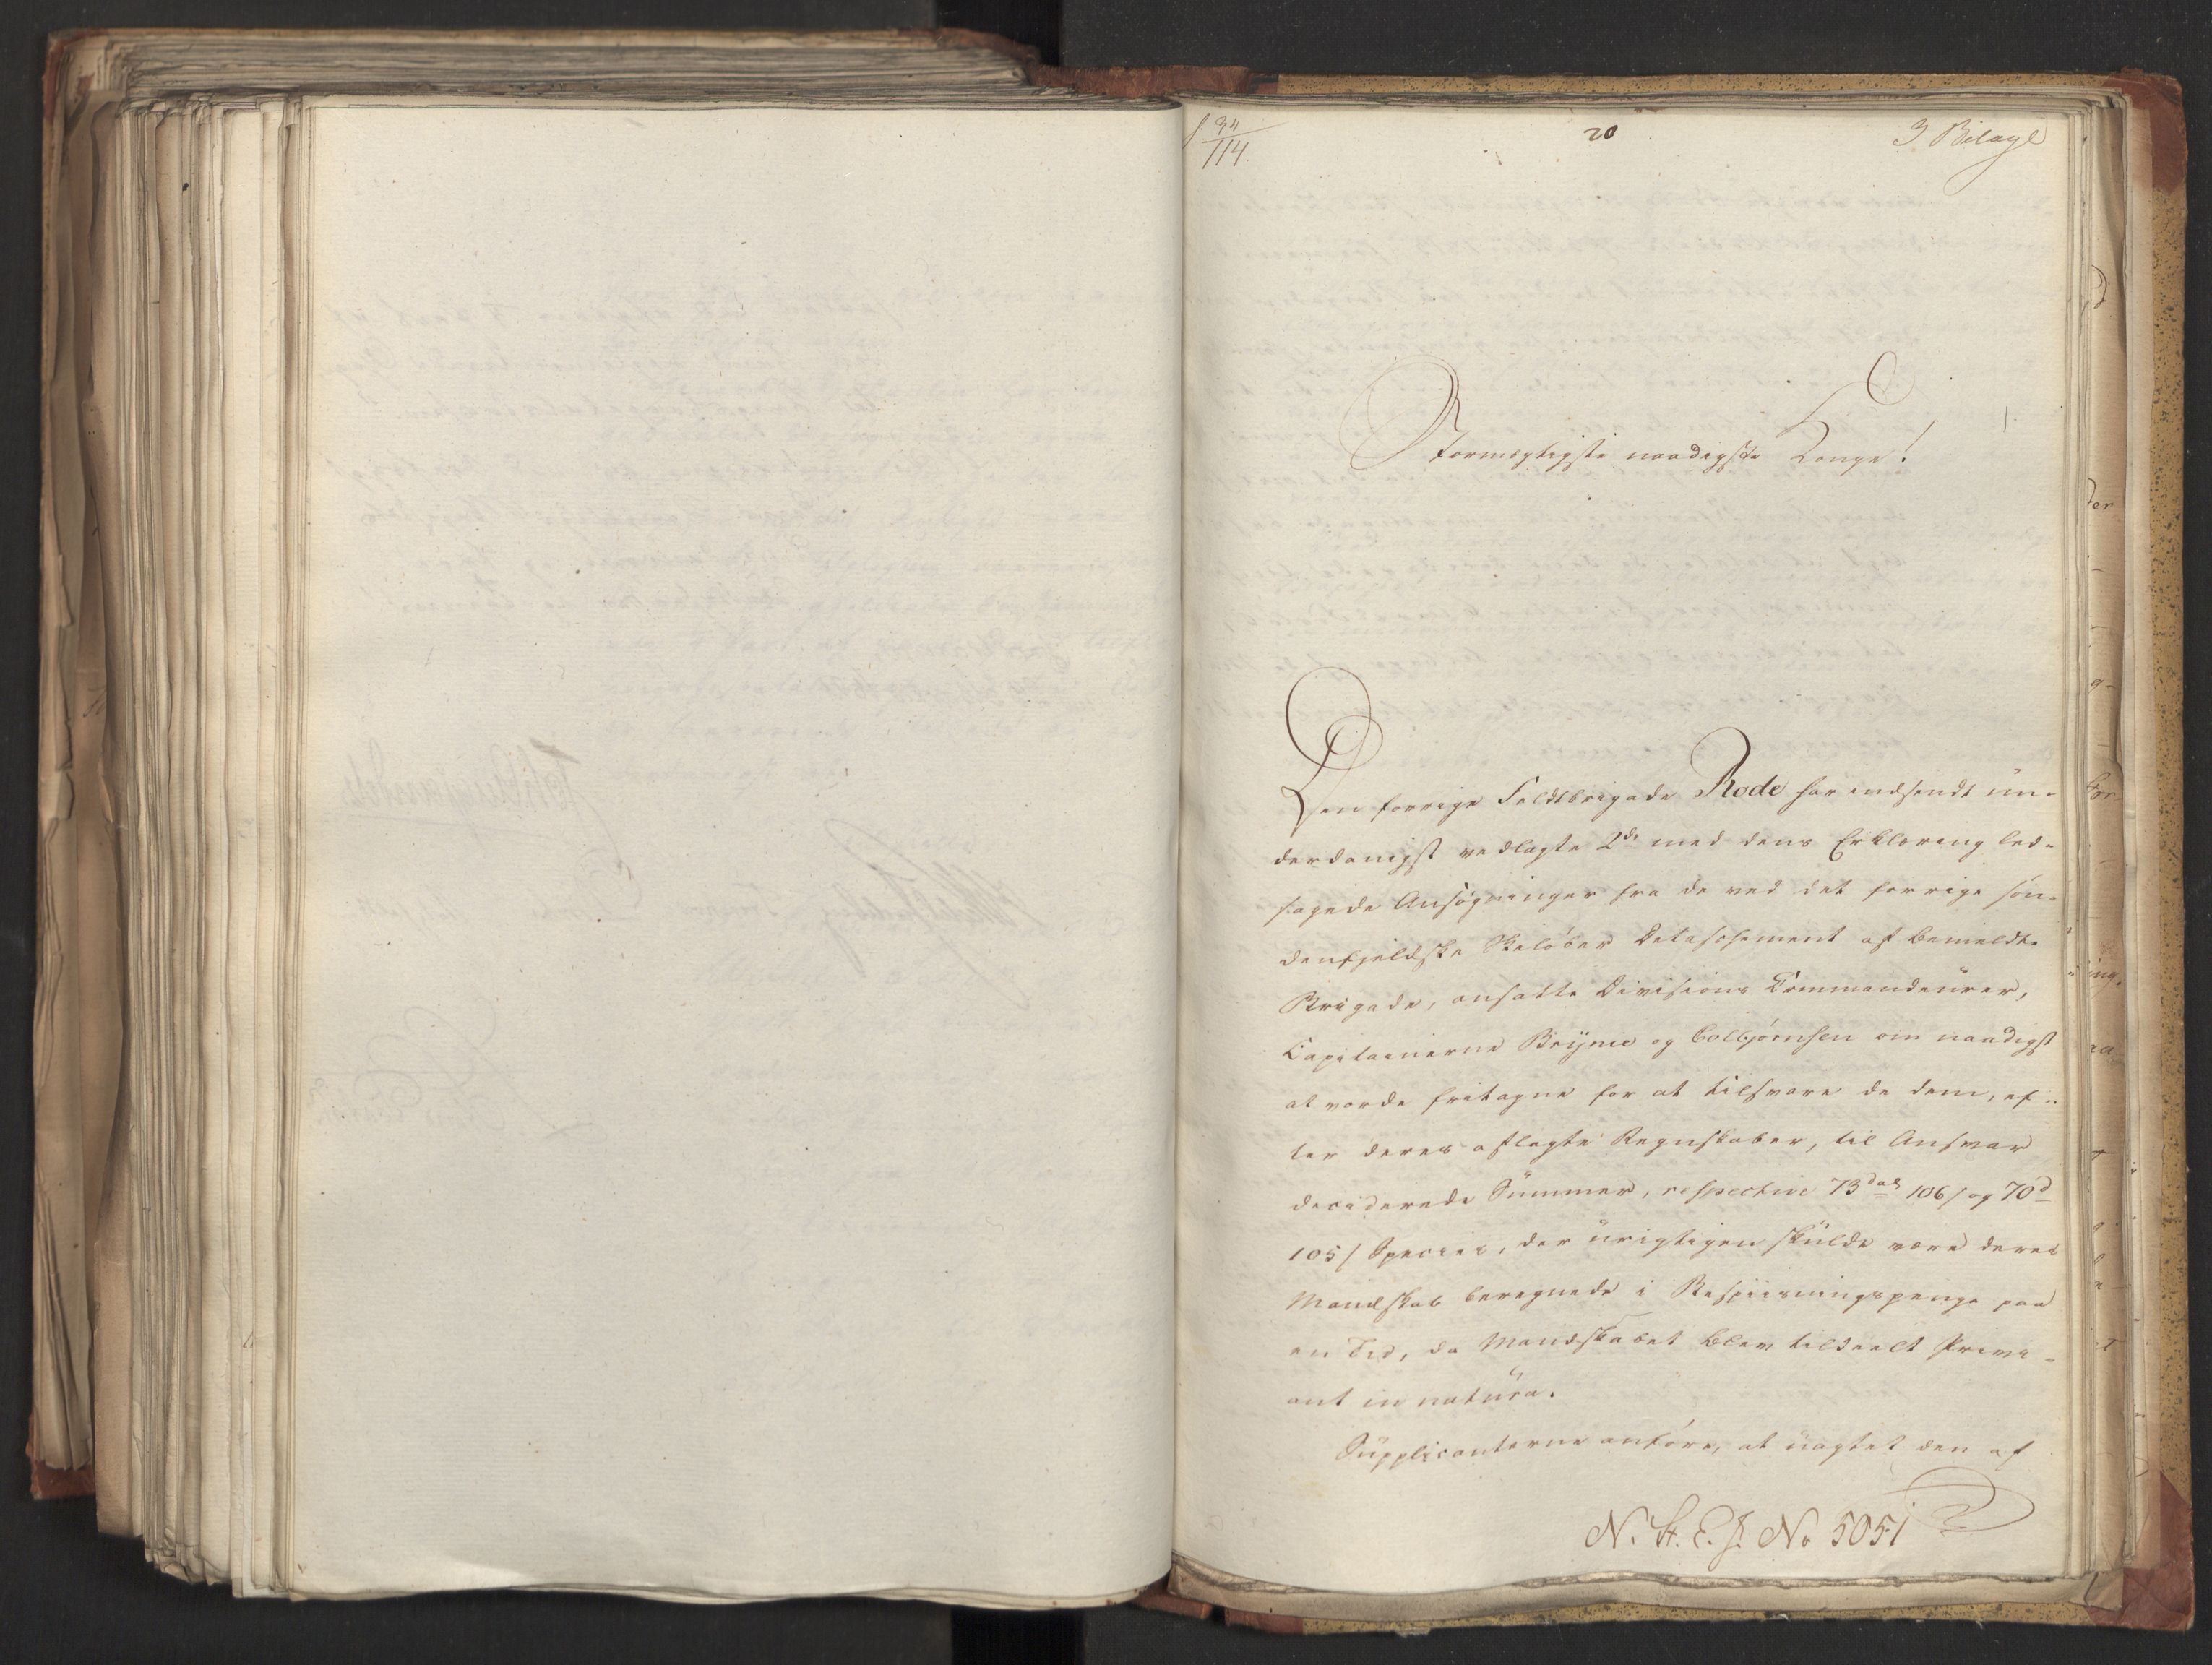 34
114.
20
3 Bilage
Stormægtigste naadigste Konge!
Den forrige Feldtbrigade Rode har indsendt un-
derdanigst vedlagte 2de med dens Erklæring led-
sagede Ansøgninger fra de ved det forrige søn-
denfjeldske Skiløber Detaschement af bemeldte
Brigade, ansatte Divisions Commandeurer,
Capitainerne Brÿnie og Colbjørnsen om naadigst
at vorde fritagne for at tilsvare de dem, ef-
ter deres aflagte Regnskaber, til Ansvar
deciderede Summer, respective 73 dal 106 s og 70 d
105 s Specier, der urigtigen skulde være deres
Mandskab beregnede i Bespiisningspenge paa
en Tid, da Mandskabet blev tildeelt Provi-
ant in natura.
Supplicanterne anføre, at uagtet den af
N. St. E. J. No 5051